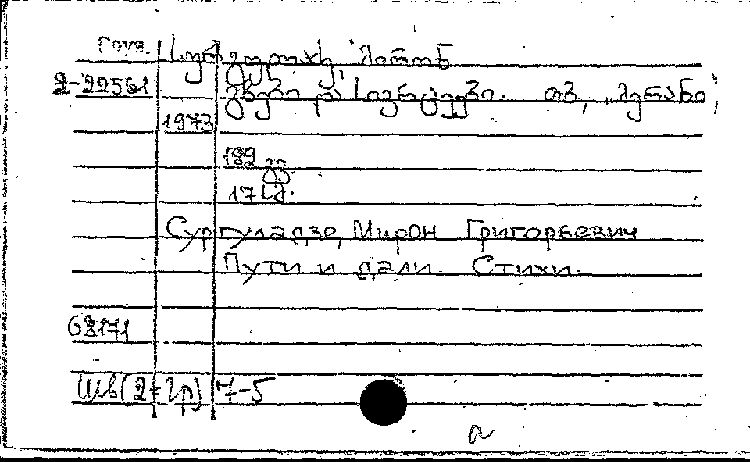 Груз. სურგულაძე, მირონ
2-22561 გზები და სივრცეები. თბ, „მერანი“,
1973
189 გვ
17 სმ.
Сургуладзе, Мирон Григорьевич
Пути и дали. Стихи.
63171
Шв(2=Гр) 7-5